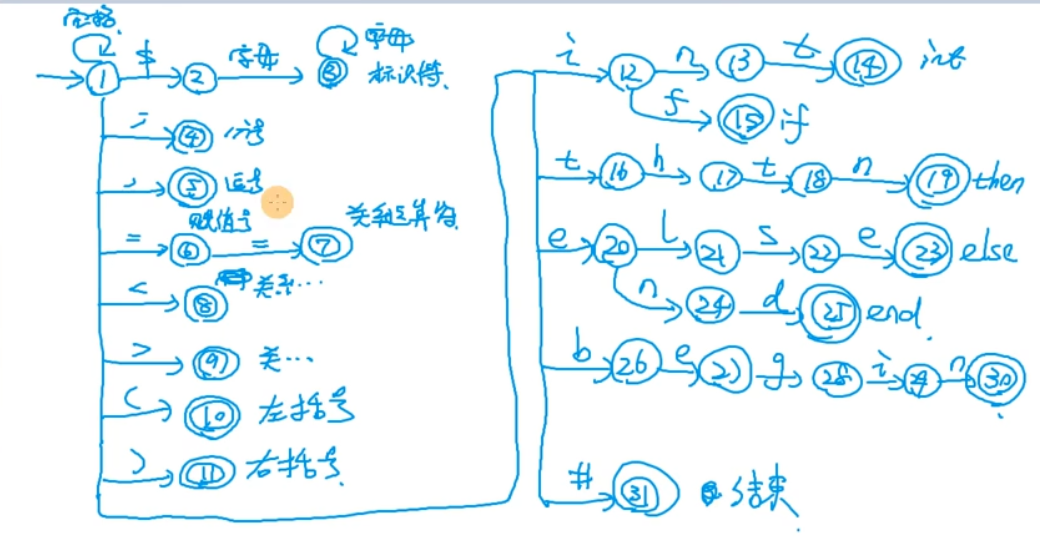 空格
① $ ② 字母 ③ 字母
标识符
; ④ 分号
, ⑤ 逗号
= ⑥ 赋值号 = ⑦ 关系运算符
< ⑧ 关系…
> ⑨ 关…
( ⑩ 左括号
) ⑪ 右括号
i ⑫ n ⑬ t ⑭ int
f ⑮ if
t ⑯ h ⑰ t ⑱ n ⑲ then
e ⑳ l ㉑ s ㉒ e ㉓ else
n ㉔ d ㉕ end
b ㉖ e ㉗ g ㉘ i ㉙ n ㉚
# ㉛ 结束